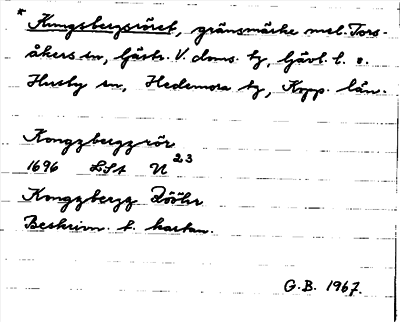 * Kungsbergsröret, gränsmärke mel. Tors-
åkers sn, Gästr. V. doms. tg, Gävl. l. o.
Husby sn, Hedemora tg, Kopp. län.
Kongzbergzrör
1696 LSt U 23
Kongzbergz Rööhr
Beskrivn. t. kartan.
G.B. 1967.